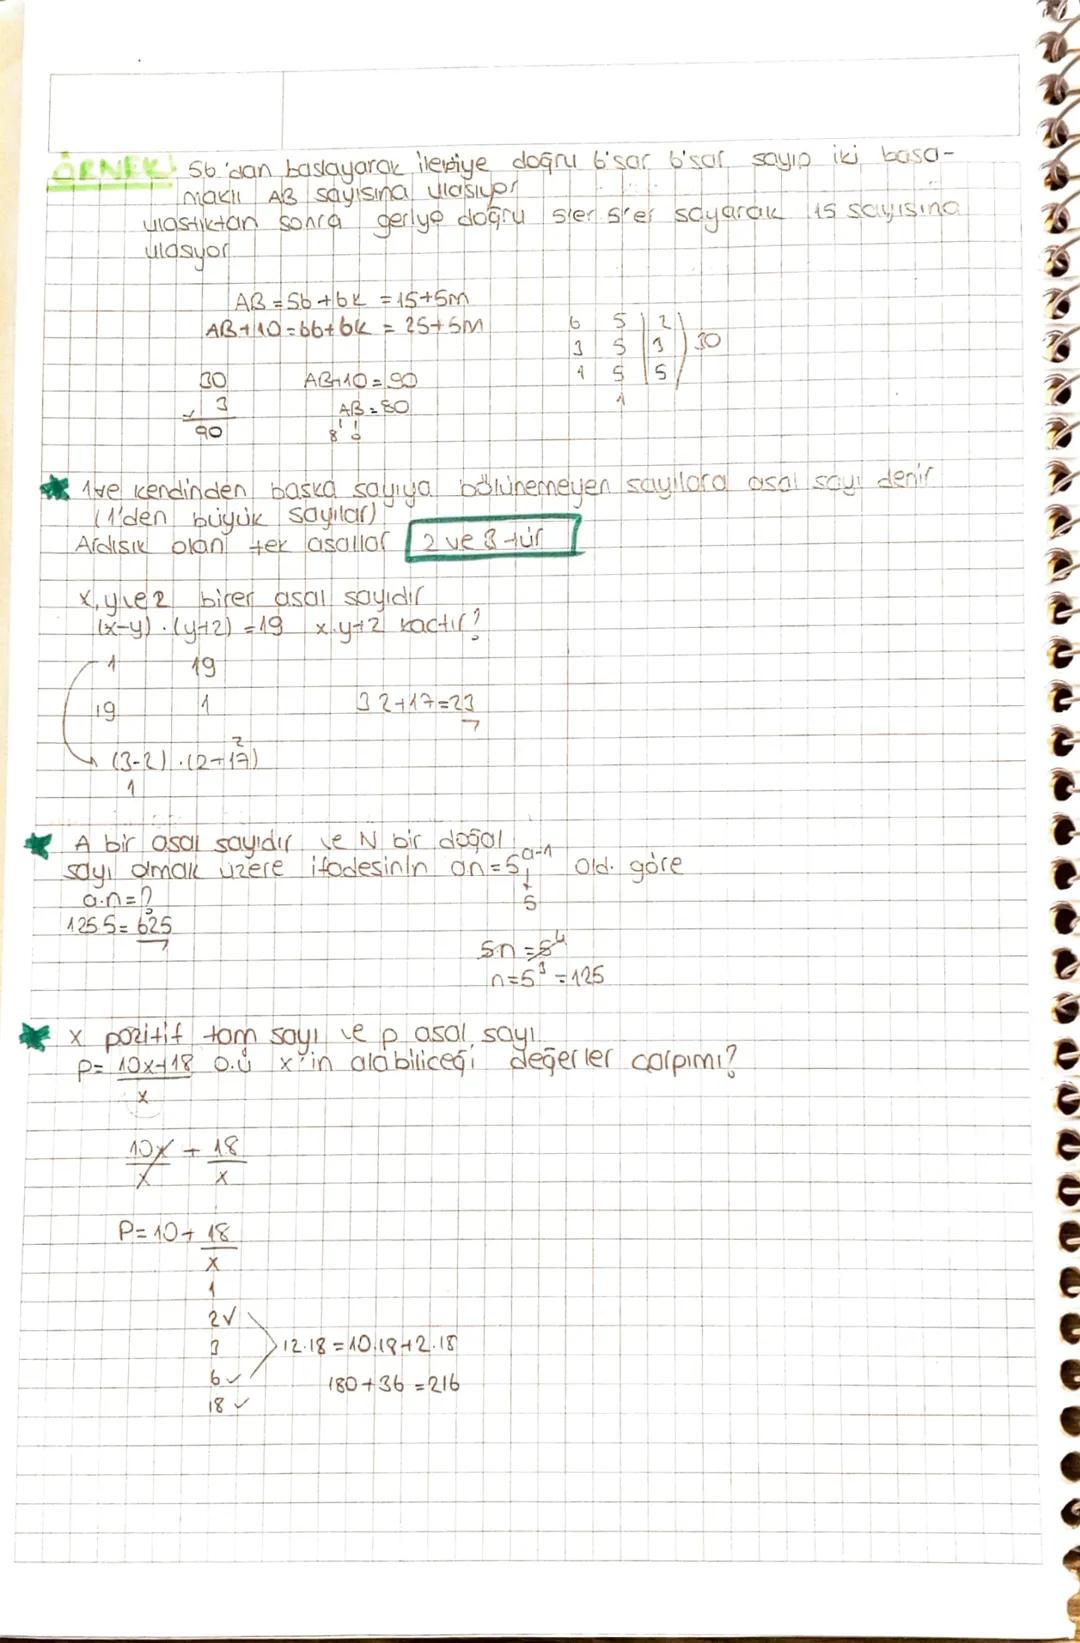 ÖRNEK! 56'dan başlayarak ileriye doğru 6'şar 6'şar sayıp iki basa-
maklı AB sayısına ulaşıyor
ulaştıktan sonra geriye doğru 5'er 5'er sayarak 15 sayısına
ulaşıyor
AB=56+6k=15+5m
AB+10=66+6k=25+5m
6 5 2
3 5 3 30
1 5 5
1
30
x 3
90
AB+10=90
AB=80
8 0
1 ve kendinden başka sayıya bölünemeyen sayılara asal sayı denir
(1'den büyük sayılar)
Ardışık olan tek asallar 2 ve 3 tür
x,y ve z birer asal sayıdır
(x-y).(y+z)=19 x.y+z kaçtır?
1 19
19 1
3 2+17=23
(3-2).(2+17) z
1
A bir asal sayıdır ve N bir doğal
sayı olmak üzere ifadesinin an=5^a-1 old. göre
5
a.n=?
125.5=625
5n=5^4
n=5^3=125
x pozitif tam sayı ve p asal sayı
P=10x+18/x o.ü x'in alabiliceği değerler çarpımı?
10x/x + 18/x
P=10+18/x
1
2✓
3 12.18=10.18+2.18
6✓ 180+36=216
18✓